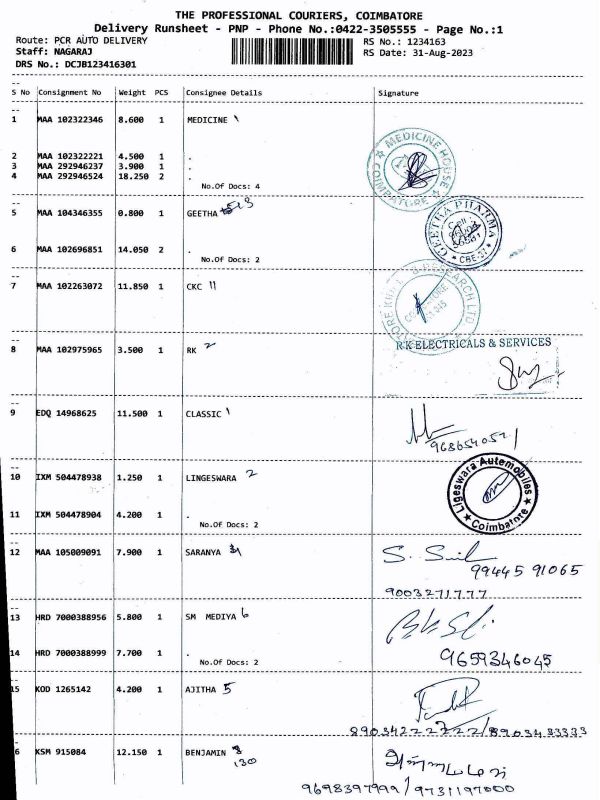 THE PROFESSIONAL COURIERS, COIMBATORE
Delivery Runsheet - PNP - Phone No.:0422-3505555 - Page No.:1
Route: PCR AUTO DELIVERY
RS No.: 1234163
Staff: NAGARAJ
RS Date: 31-Aug-2023
DRS No.: DCJB123416301
S No Consignment No Weight PCS Consignee Details Signature
1 MAA 102322346 8.600 1 MEDICINE
2 MAA 102322221 4.500 1 .
3 MAA 292946237 3.900 1 .
4 MAA 292946524 18.250 2 .
No.Of Docs: 4
MEDICINE HOUSE
COIMBATORE
5 MAA 104346355 0.800 1 GEETHA
GEETHA PHARMA
CBE-31
6 MAA 102696851 14.050 2 .
No.Of Docs: 2
7 MAA 102263072 11.850 1 CKC 11
8 MAA 102975965 3.500 1 RK 2
R.K ELECTRICALS & SERVICES
9 EDQ 14968625 11.500 1 CLASSIC 1
10 IXM 504478938 1.250 1 LINGESWARA 2
Ligeswara Automobiles
Coimbatore
11 IXM 504478904 4.200 1 .
No.Of Docs: 2
12 MAA 105009091 7.900 1 SARANYA
99445 91065
9003271777
13 HRD 7000388956 5.800 1 SM MEDIYA 6
14 HRD 7000388999 7.700 1 .
No.Of Docs: 2
9659346045
15 KOD 1265142 4.200 1 AJITHA 5
6 KSM 915084 12.150 1 BENJAMIN 8
130
9698397999 / 9731197000